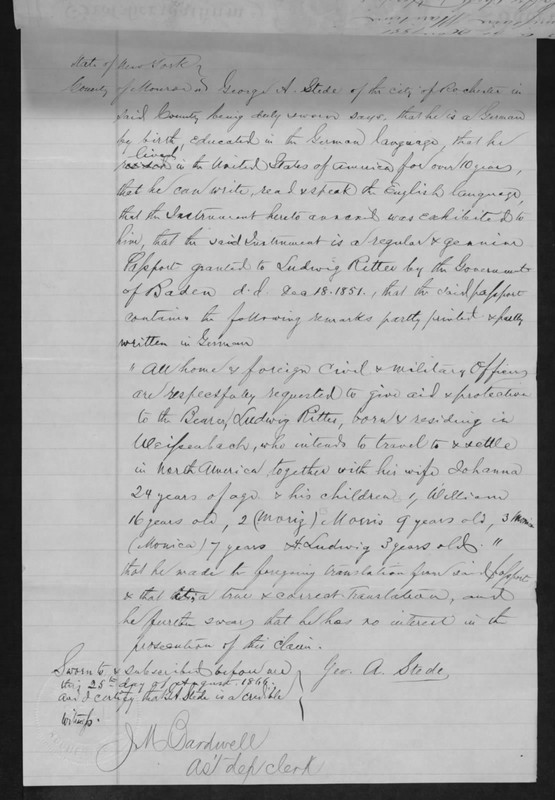 State of New York }
County of Monroe } ss George A. Stede of the city of Rochester in
said County, being duly sworn says, that he is a German
by birth, educated in the German language, that he
lived
in the United States of America for over 10 years,
that he can write, read & speak the English language,
that the Instrument hereto annexed was exhibited to
him, that the said Instrument is a regular & genuine
Passport granted to Ludwig Ritter by the Government
of Baden d.d. Dec 18. 1851., that the said passport
contains the following remarks partly printed & partly
written in German
" All home & foreign Civil & Military Officers
are respectfully requested to give aid & protection
to the Bearer, Ludwig Ritter, born & residing in
Weissenbach, who intends to travel to & settle
in North America together with his wife Johanna
24 years of age & his children 1, William
16 years old, 2 (Moriz) Morris 9 years old, 3
(Monica) 7 years 4. Ludwig 3 years old. "
that he made to foregoing translation from said passport
& that a true & correct Translation, and
he further swears that he has no interest in the
prosecution of this claim.
Sworn to & subscribed before me
this 25th day of August 1866
and I certify that G.A. Stede is a credible
witness.
Geo. A. Stede
J M Cardwell
As't dep clerk